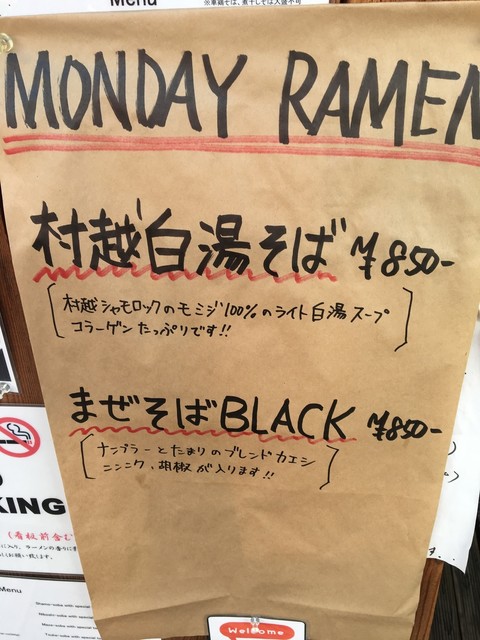 Menu
※鶏そば、煮干しそば大盛不可
MONDAY RAMEN
村越白湯そば ¥850-
村越シャモロックのモミジ100%のライト白湯スープ
コラーゲンたっぷりです!!
まぜそばBLACK ¥850-
ナンプラーとたまりのブレンドカエシ
ニンニク、胡椒が入ります!!
KING
(看板前含む
Menu
Welcome